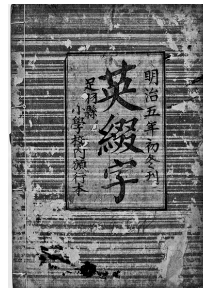 明治五年初冬刊
英綴字
足羽縣
小學校翻行本